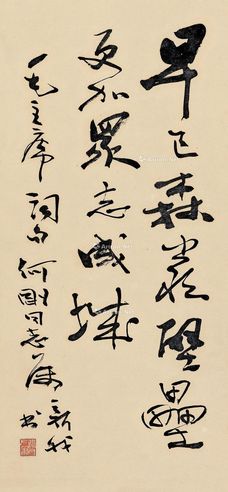 早已森严壁垒
更加众志成城
毛主席词句 何刚同志属 新我
书